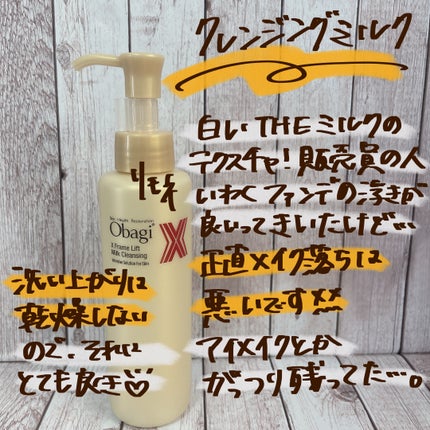 クレンジングミルク
白いTHEミルクの
テクスチャ!販売員の人
いわくファンデの浮きが
良いってきいたけど…
正直メイク落ちは
悪いです××
アイメイクとか
がっつり残ってた…。
洗い上がりは
乾燥しない
ので、それは
とても良き♡
Obagi
X
X Frame Lift
Milk Cleansing